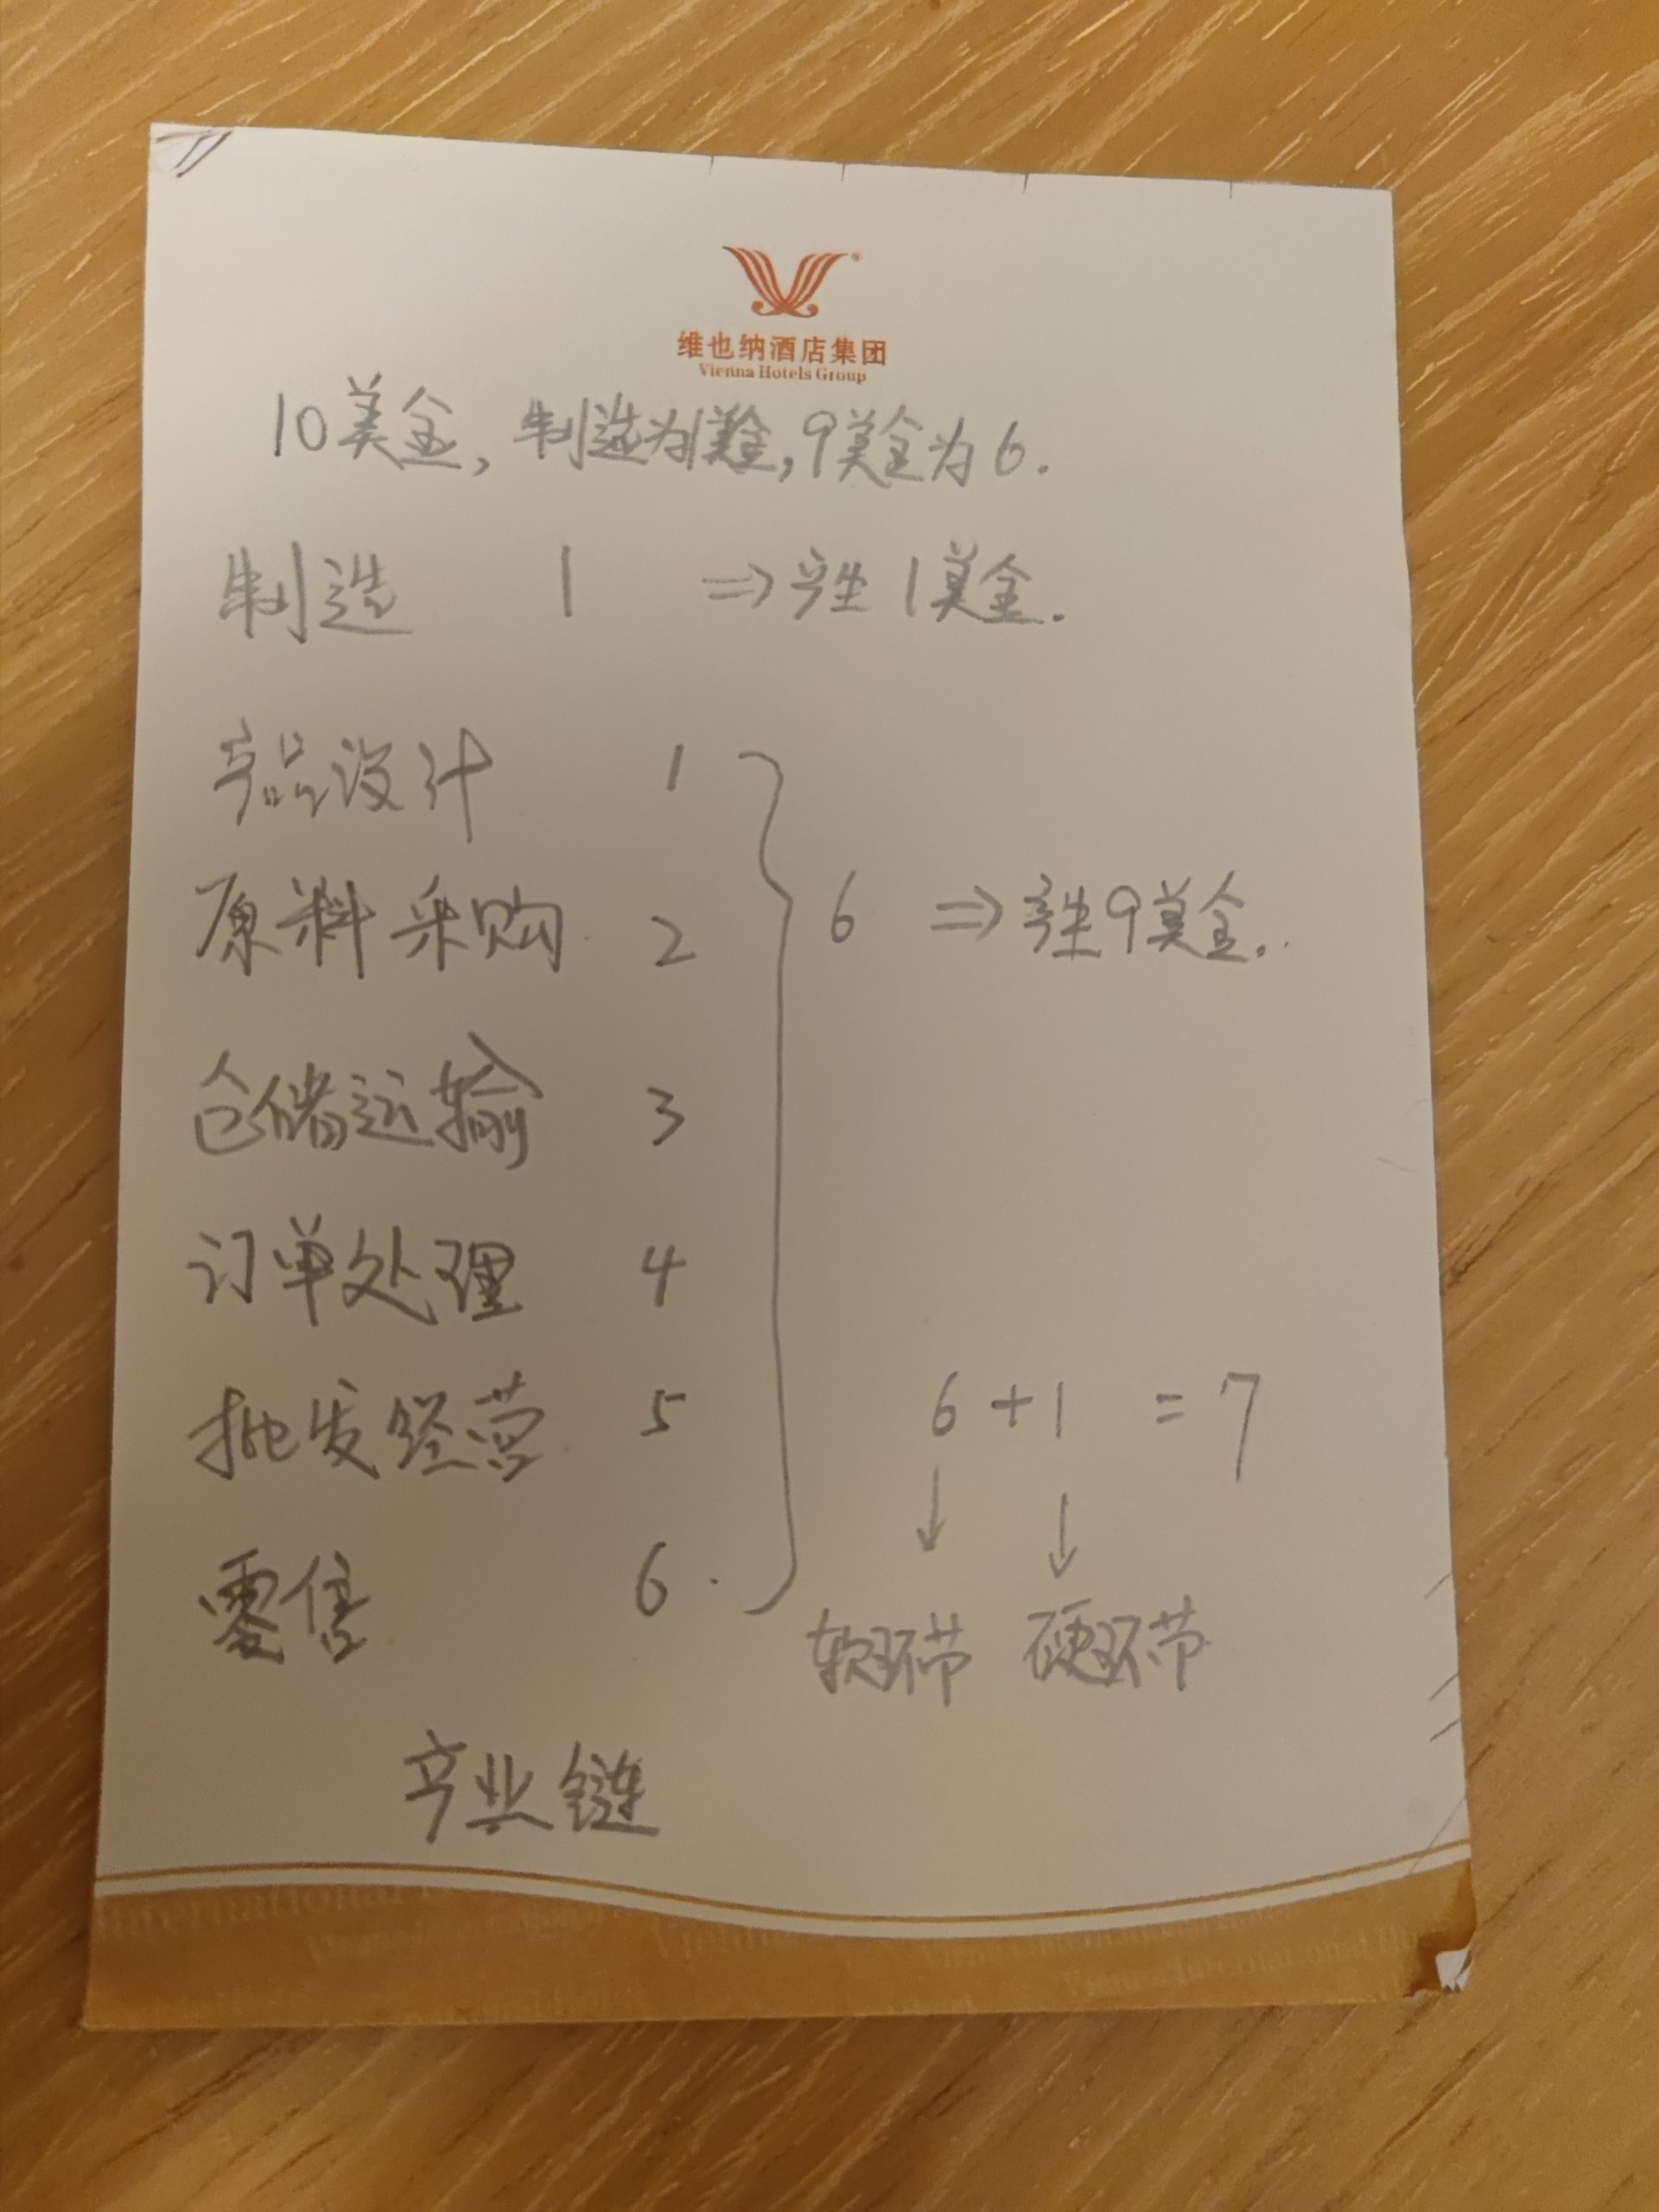 维也纳酒店集团
Vienna Hotels Group
10美金，制造为1美金，9美金为6.
制造 1 ⇒产生 1美金.
产品设计 1
原料采购 2
6 ⇒产生9美金.
仓储运输 3
订单处理 4
批发经营 5
6 + 1 = 7
零售 6.
↓ ↓
软环节 硬环节
产业链